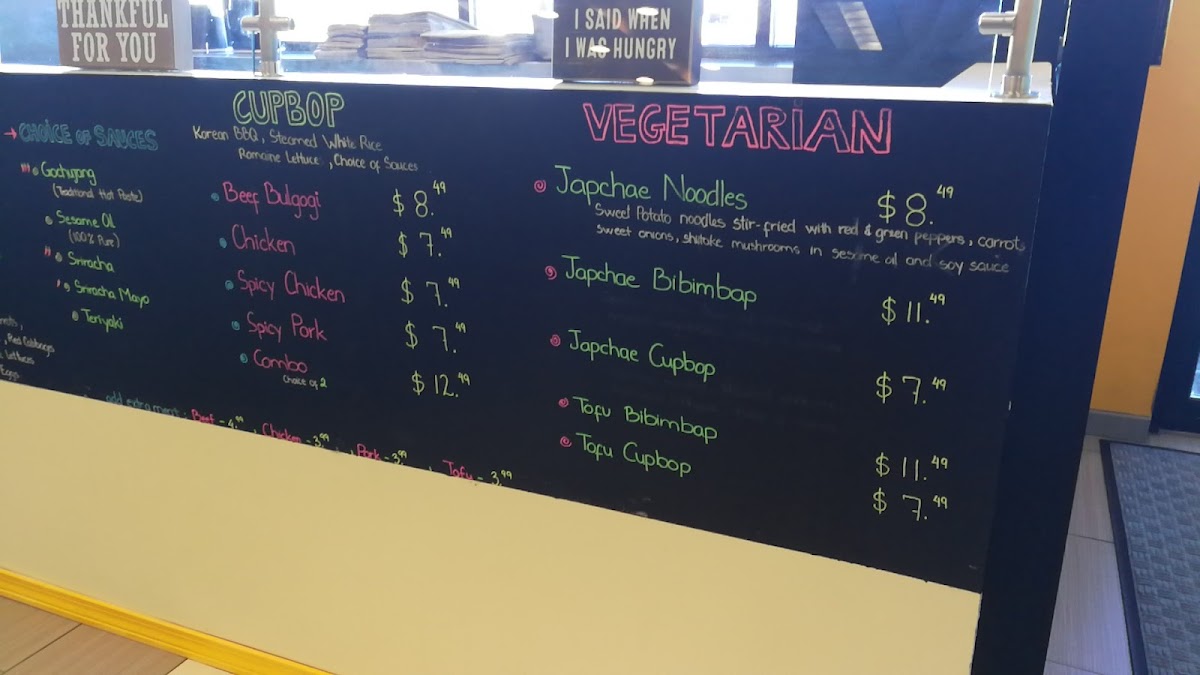 THANKFUL
FOR YOU
I SAID WHEN
I WAS HUNGRY
CHOICE OF SAUCES
Gochujang
(Traditional Hot Paste)
Sesame Oil
(100% Pure)
Sriracha
Sriracha Mayo
Teriyaki
, Red Cabbage
Lettuce
Eggs
CUPBOP
Korean BBQ, Steamed White Rice
Romaine Lettuce, Choice of Sauces
Beef Bulgogi $8.49
Chicken $7.49
Spicy Chicken $7.49
Spicy Pork $7.49
Combo $12.49
Choice of 2
add extra meat: Beef - 4.99 , Chicken - 3.99 , Pork - 3.99 , Tofu - 3.99
VEGETARIAN
Japchae Noodles $8.49
Sweet Potato noodles stir-fried with red & green peppers, carrots
sweet onions, shiitake mushrooms in sesame oil and soy sauce
Japchae Bibimbap $11.49
Japchae Cupbop $7.49
Tofu Bibimbap $11.49
Tofu Cupbop $7.49